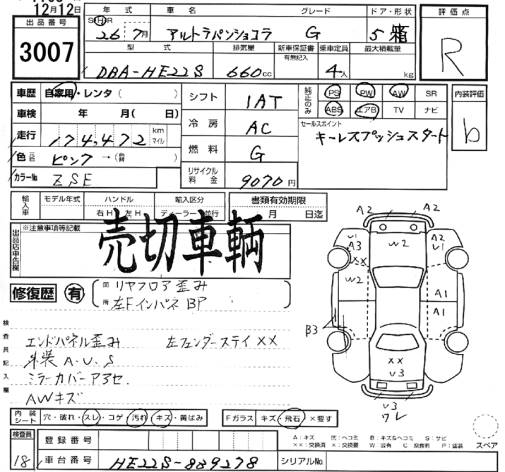 12月12日
出品番号
3007
年式 車名 グレード ドア・形状
S H R
26年 7月 アルトラパンショコラ G 5 箱
評価点
R
型式 排気量 新車保証書 有無記入 乗車定員 最大積載量
DBA-HE22S 660cc 4人 kg
車歴 自家用・レンタ( )
車検 年 月( 日)
走行 174,472 km マイル
色 ピンク →( )
カラーNo ZSE
シフト 1AT
冷房 AC
燃料 G
リサイクル料金 9070円
純正のみ PS PW AW SR
ABS エアB TV ナビ
セールスポイント
キーレスプッシュスタート
内装評価
b
輸入車 モデル年式 ハンドル 輸入区分 書類有効期限
右H 左H ディーラー 並行 月 日迄
※注意事項等記載
売切車輌
修復歴 有
リヤフロア歪み
左Fインパネ BP
検査員記入欄
エンドパネル歪み 左フェンダーステイ××
外装 A.U.S
ミラーカバーアスセ
AWキズ
A2
A2
U1
A3
××
U2
U2
U1
W2
A1
A1
B3
××
U3
U3
ワレ
内装シート 穴・破れ・スレ・コゲ・汚れ・キズ・黄ばみ
Fガラス キズ・飛石・×要す
スペア
検査員
18
登録番号
車台番号 HE22S-889278
シリアルNo